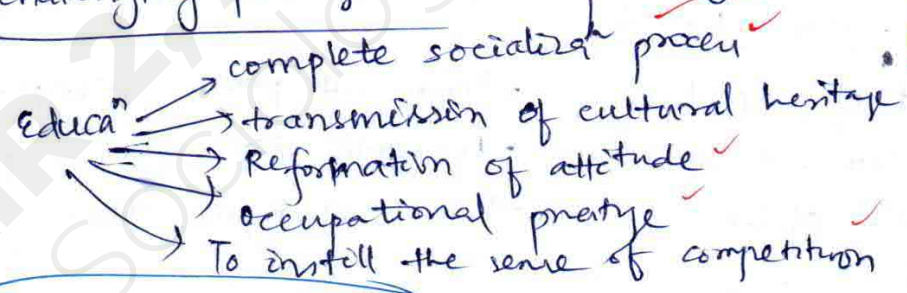 complete socializaⁿ process
Educaⁿ
transmission of cultural heritage
Reformation of attitude
occupational
To instill the sense of competition